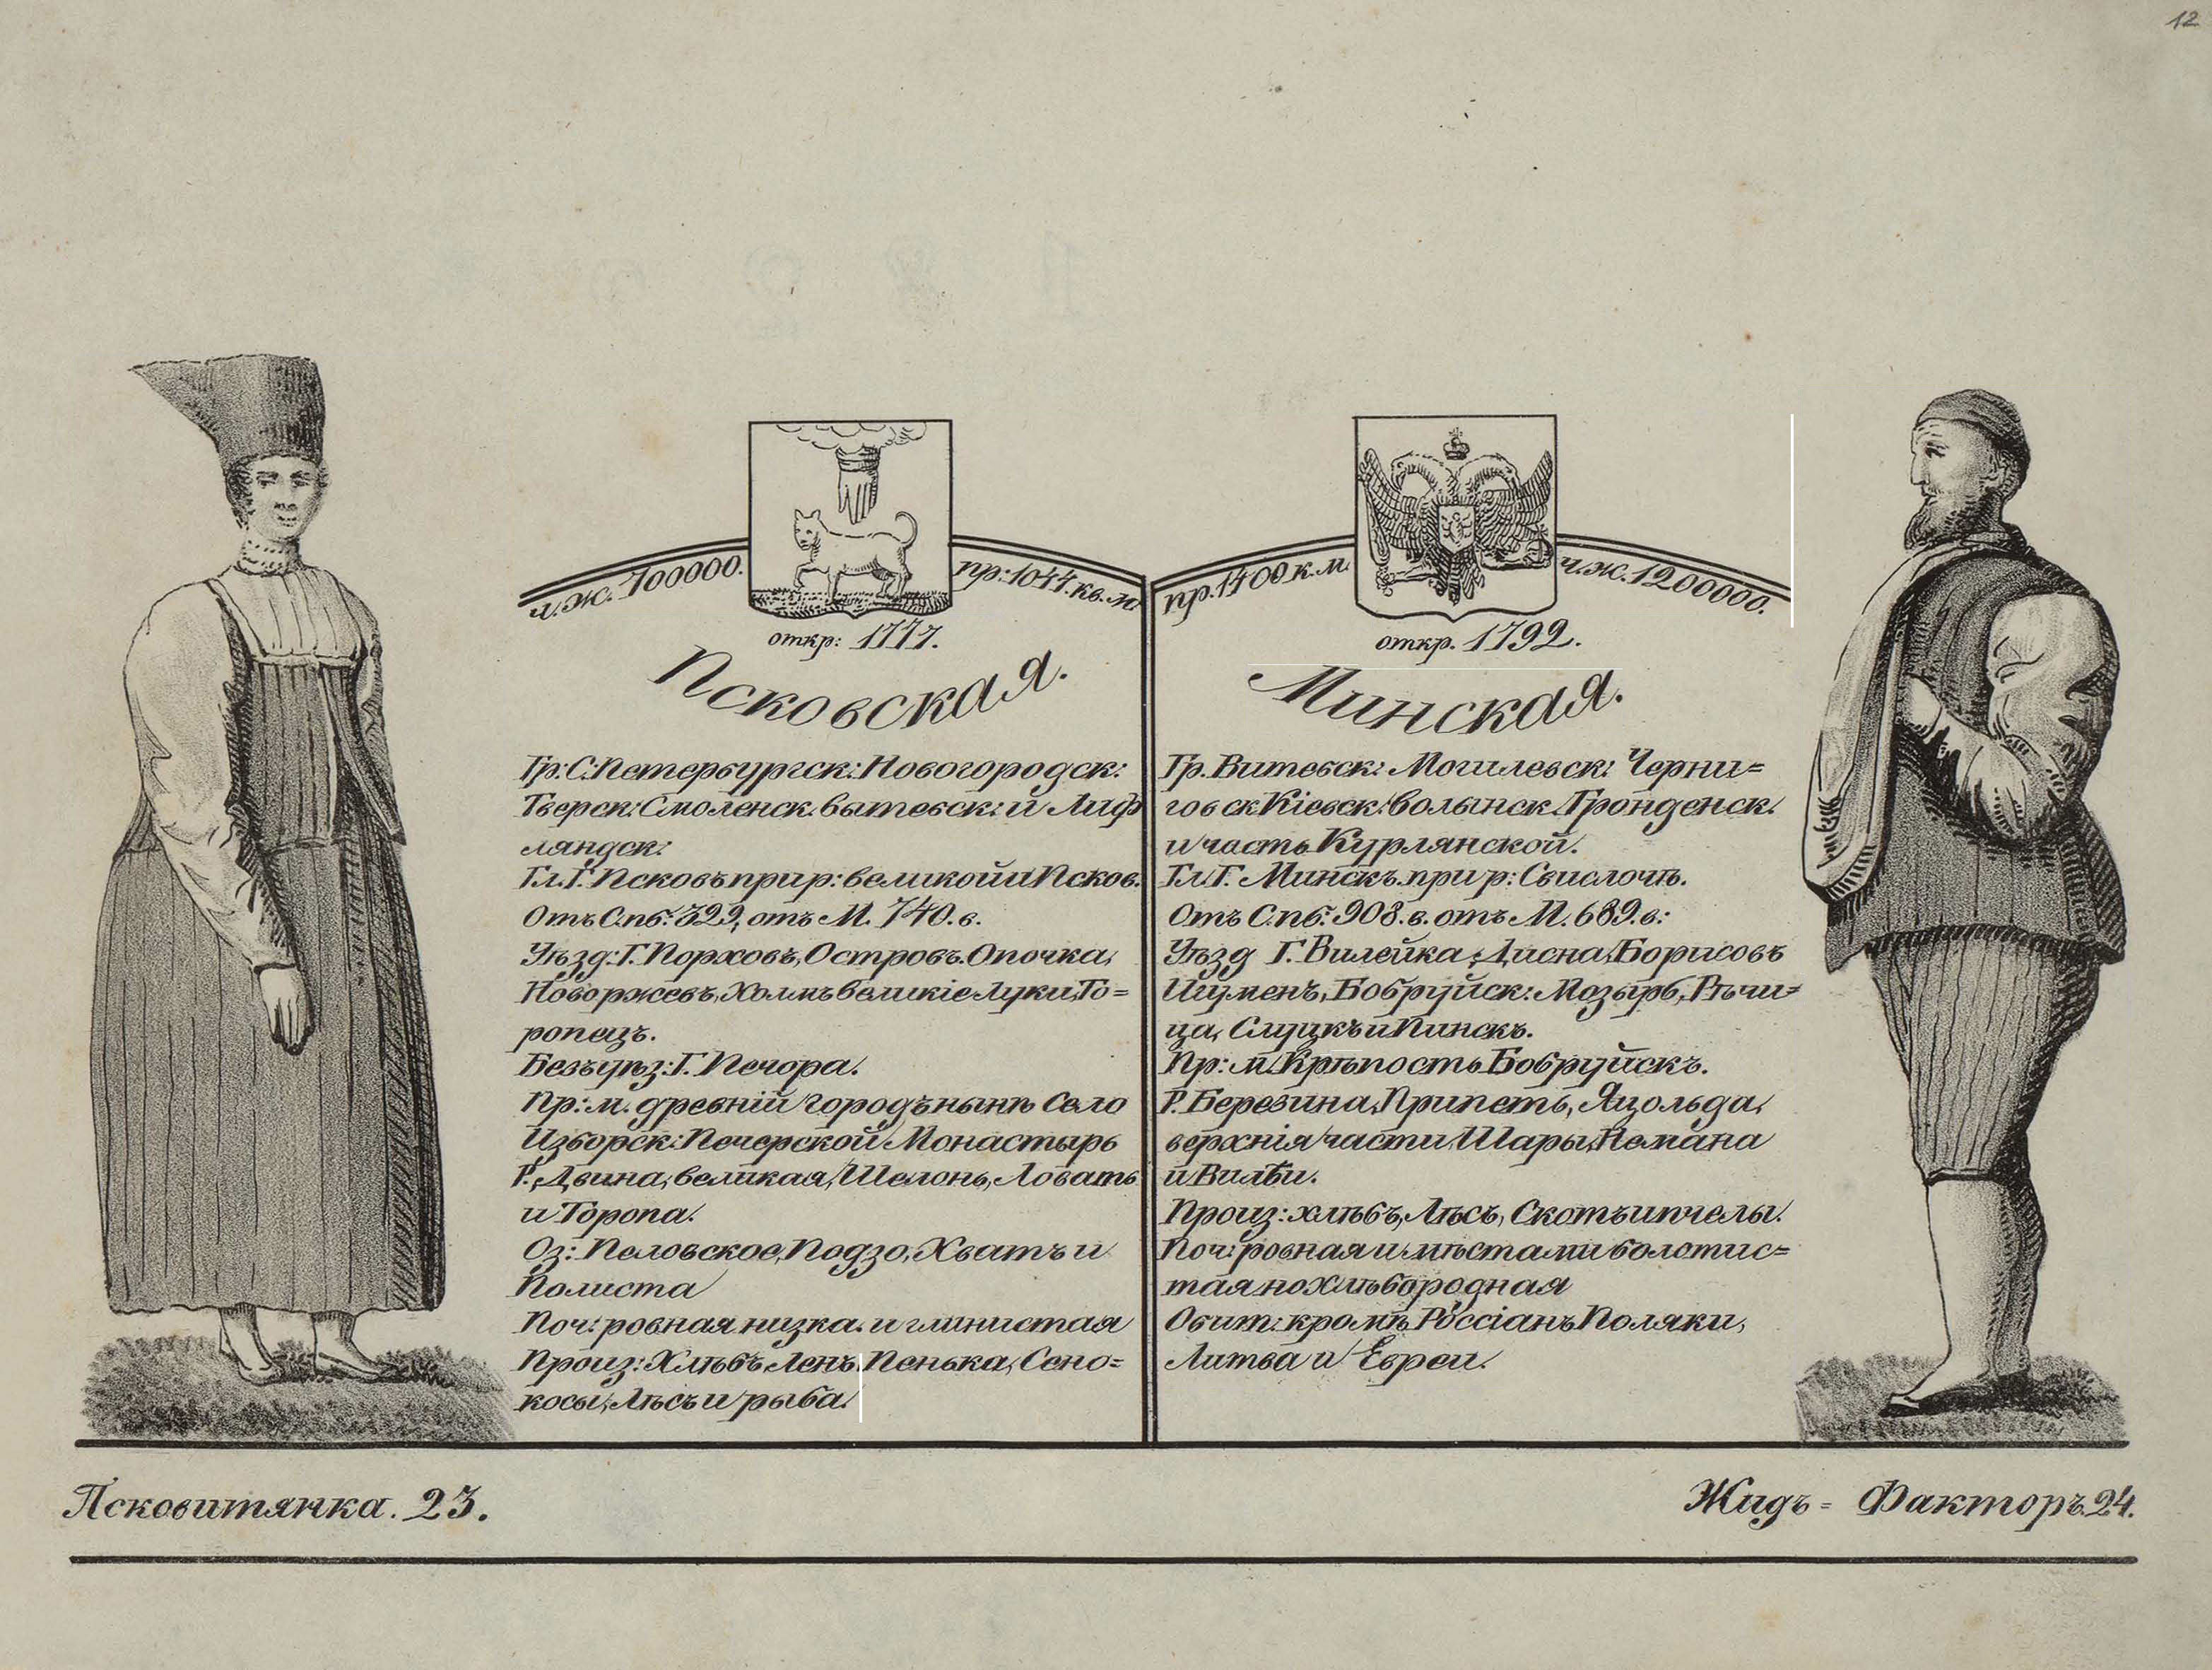 12
ч. ж. 700000.
пр: 1044. кв. м
откр: 1777.
Псковская.
Гр: С: Петербургск: Новогородск:
Тверск: Смоленск. вытевск: и Лиф
ляндск:
Гл. Г. Псковъ при р: великой и Псков.
Отъ С.пб: 329, отъ М. 740. в.
Уѣзд: Г. Порховъ, Островъ. Опочка,
Новоржевъ, Холмъ великіе луки, То=
ропецъ.
Безъуѣз: Г. Печора.
Пр: м. древній городъ нынѣ Село
Изборск: Печерской Монастырь
Р. Двина, великая, Шелонь, Ловать
и Торопа.
Оз: Пеловское, Подзо, Хватъ и
Полиста
Поч: ровная низка. и глинистая
Произ: Хлѣбъ, Ленъ, Пенька, Сено=
косы, Лѣсъ и рыба.
пр. 1400 к. м.
ч. ж. 1200000.
откр. 1792.
Минская.
Гр. Витевск: Могилевск: Черни=
говск Кіевск: волынск. Гронденск.
и часть Курлянской.
Гл. Г. Минскъ при р: Свислочѣ.
Отъ С.пб: 908. в. отъ М. 689. в:
Уѣзд Г. Вилейка, Дисна, Борисовъ
Игуменъ, Бобруйск: Мозырь, Рѣчи=
ца, Слуцкъ и Пинскъ.
Пр: м. Крѣпость Бобруйскъ.
Р. Березина, Припеть, Яцольда,
верхнія части, Шары, Немана
и Вилѣи.
Произ: хлѣбъ, Лѣсъ, Скотъ и пчелы.
Поч: ровная и мѣстами болотис=
тая но хлѣбородная
Обит: кромѣ Россіанъ Поляки,
Литва и Евреи.
Псковитянка. 23.
Жидъ = Факторъ. 24.